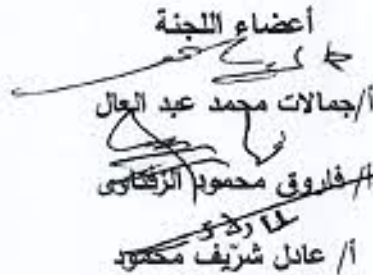 أعضاء اللجنة
أ/جمالات محمد عبد العال
أ/ فاروق محمود الزفتاوى
أ/ عادل شريف محمود